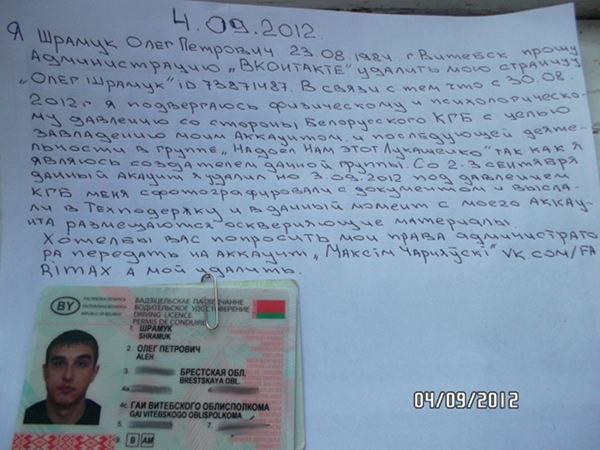 4.09.2012
Я Шрамук Олег Петрович 23.08.1984 г Витебск прошу
Администрацию „ВКОНТАКТЕ" удалить мою страницу
„Олег Шрамук" iD 73871487. В связи с тем что с 30.08.
2012 г. я подвергаюсь физическому и психологическо-
му давлению со стороны Белорусского КГБ с целью
завладению моим Аккаунтом и последующей деяте-
льности в группе „Надоел Нам этот Лукашенко" так как я
являюсь создателем данной группы. Со 2-3 сентября
данный акаунт я удалил но 3.09.2012 под давлением
КГБ меня сфотографировали с документом и высла-
ли в Техподержку и в данный момент с моего акка-
унта размещаются оскверняющие материалы.
Хотел бы вас попросить мои права администрато
ра передать на аккаунт „Максiм Чарняўскi" VK COM/FA
RIMAX а мой удалить.
BY
ВАДЗІЦЕЛЬСКАЕ ПАСВЕДЧАННЕ
ВОДИТЕЛЬСКОЕ УДОСТОВЕРЕНИЕ
DRIVING LICENCE
PERMIS DE CONDUIRE
РЭСПУБЛІКА БЕЛАРУСЬ
РЕСПУБЛИКА БЕЛАРУСЬ
REPUBLIC OF BELARUS
1. ШРАМУК
SHRAMUK
2. ОЛЕГ ПЕТРОВИЧ
ALEH
3.
БРЕСТСКАЯ ОБЛ.
BRESTSKAYA OBL.
4a
4c ГАИ ВИТЕБСКОГО ОБЛИСПОЛКОМА
GAI VITEBSKOGO OBLISPOLKOMA
5. 7.
9. B AM
04/09/2012